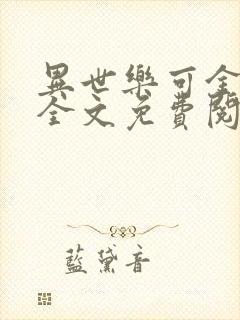 異世樂可全
全文免費閱
藍黛音